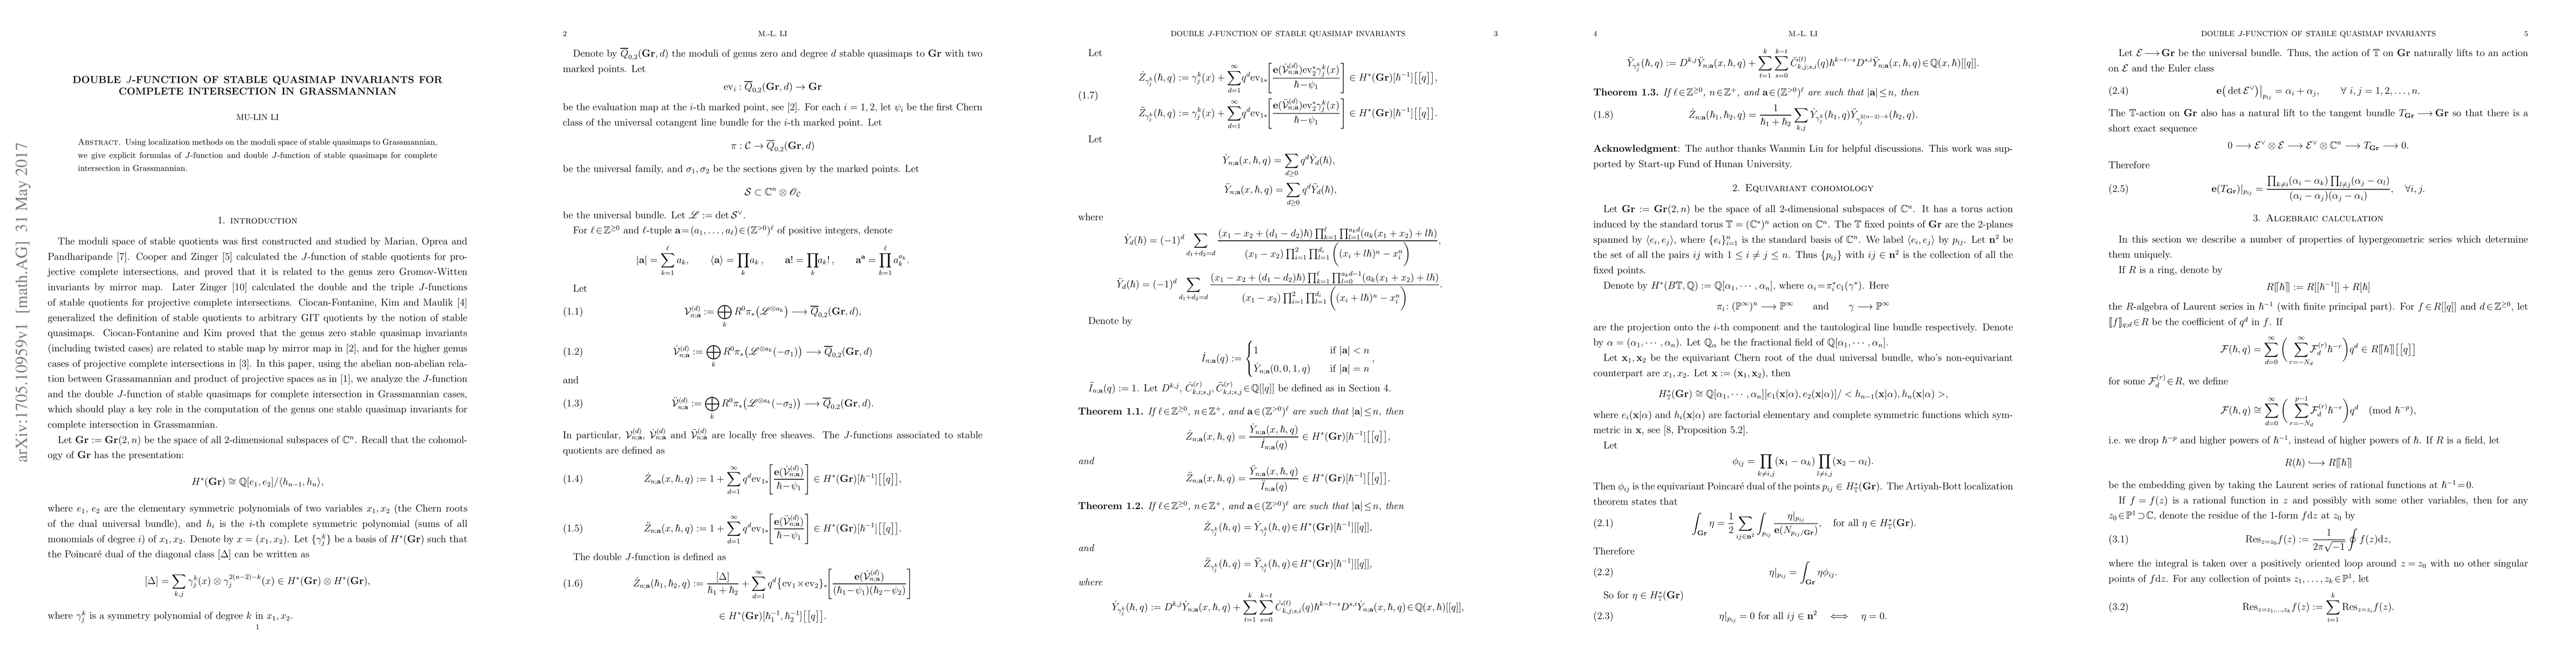 arXiv:1705.10959v1 [math.AG] 31 May 2017
DOUBLE J-FUNCTION OF STABLE QUASIMAP INVARIANTS FOR
COMPLETE INTERSECTION IN GRASSMANNIAN
MU-LIN LI
Abstract. Using localization methods on the moduli space of stable quasimaps to Grassmannian,
we give explicit formulas of J-function and double J-function of stable quasimaps for complete
intersection in Grassmannian.
1. introduction
The moduli space of stable quotients was first constructed and studied by Marian, Oprea and
Pandharipande [7]. Cooper and Zinger [5] calculated the J-function of stable quotients for pro-
jective complete intersections, and proved that it is related to the genus zero Gromov-Witten
invariants by mirror map. Later Zinger [10] calculated the double and the triple J-functions
of stable quotients for projective complete intersections. Ciocan-Fontanine, Kim and Maulik [4]
generalized the definition of stable quotients to arbitrary GIT quotients by the notion of stable
quasimaps. Ciocan-Fontanine and Kim proved that the genus zero stable quasimap invariants
(including twisted cases) are related to stable map by mirror map in [2], and for the higher genus
cases of projective complete intersections in [3]. In this paper, using the abelian non-abelian rela-
tion between Grassamannian and product of projective spaces as in [1], we analyze the J-function
and the double J-function of stable quasimaps for complete intersection in Grassmannian cases,
which should play a key role in the computation of the genus one stable quasimap invariants for
complete intersection in Grassmannian.
Let Gr := Gr(2, n) be the space of all 2-dimensional subspaces of ℂⁿ. Recall that the cohomol-
ogy of Gr has the presentation:
H*(Gr) ≅ ℚ[e₁, e₂]/⟨hₙ₋₁, hₙ⟩,
where e₁, e₂ are the elementary symmetric polynomials of two variables x₁, x₂ (the Chern roots
of the dual universal bundle), and hᵢ is the i-th complete symmetric polynomial (sums of all
monomials of degree i) of x₁, x₂. Denote by x = (x₁, x₂). Let {γⱼᵏ} be a basis of H*(Gr) such that
the Poincaré dual of the diagonal class [Δ] can be written as
[Δ] = ∑_{k,j} γ_j^k(x) ⊗ γ_j^{2(n−2)−k}(x) ∈ H*(Gr) ⊗ H*(Gr),
where γ_j^k is a symmetry polynomial of degree k in x₁, x₂.
1
2 M.-L. LI
Denote by Q̄₀,₂(Gr, d) the moduli of genus zero and degree d stable quasimaps to Gr with two
marked points. Let
ev_i : Q̄₀,₂(Gr, d) → Gr
be the evaluation map at the i-th marked point, see [2]. For each i = 1, 2, let ψ_i be the first Chern
class of the universal cotangent line bundle for the i-th marked point. Let
π : 𝒞 → Q̄₀,₂(Gr, d)
be the universal family, and σ₁, σ₂ be the sections given by the marked points. Let
𝒮 ⊂ ℂⁿ ⊗ 𝒪_𝒞
be the universal bundle. Let ℒ := det 𝒮^∨.
For ℓ∈ℤ^{≥0} and ℓ-tuple a=(a₁, . . . , a_ℓ)∈(ℤ^{>0})^ℓ of positive integers, denote
|a| = ∑_{k=1}^ℓ a_k, ⟨a⟩ = ∏_k a_k , a! = ∏_k a_k! , a^a = ∏_{k=1}^ℓ a_k^{a_k}.
Let
(1.1) 𝒱_{n;a}^{(d)} := ⊕_k R⁰π_*(ℒ^{⊗a_k}) ⟶ Q̄₀,₂(Gr, d),
(1.2) 𝒱̇_{n;a}^{(d)} := ⊕_k R⁰π_*(ℒ^{⊗a_k}(−σ₁)) ⟶ Q̄₀,₂(Gr, d)
and
(1.3) 𝒱̈_{n;a}^{(d)} := ⊕_k R⁰π_*(ℒ^{⊗a_k}(−σ₂)) ⟶ Q̄₀,₂(Gr, d).
In particular, 𝒱_{n;a}^{(d)}, 𝒱̇_{n;a}^{(d)} and 𝒱̈_{n;a}^{(d)} are locally free sheaves. The J-functions associated to stable
quotients are defined as
(1.4) Ż_{n;a}(x, ħ, q) := 1 + ∑_{d=1}^∞ q^d ev_{1*}[e(𝒱̇_{n;a}^{(d)})/(ħ−ψ₁)] ∈ H*(Gr)[ħ^{-1}][[q]],
(1.5) Z̈_{n;a}(x, ħ, q) := 1 + ∑_{d=1}^∞ q^d ev_{1*}[e(𝒱̈_{n;a}^{(d)})/(ħ−ψ₁)] ∈ H*(Gr)[ħ^{-1}][[q]].
The double J-function is defined as
(1.6) Ż_{n;a}(ħ₁, ħ₂, q) := [Δ]/(ħ₁ + ħ₂) + ∑_{d=1}^∞ q^d {ev₁×ev₂}_*[e(𝒱̇_{n;a}^{(d)})/((ħ₁−ψ₁)(ħ₂−ψ₂))]
∈ H*(Gr)[ħ₁^{-1}, ħ₂^{-1}][[q]].
DOUBLE J-FUNCTION OF STABLE QUASIMAP INVARIANTS 3
Let
(1.7) Ż_{γ_j^k}(ħ, q) := γ_j^k(x) + ∑_{d=1}^∞ q^d ev_{1*}[e(𝒱̇_{n;a}^{(d)})ev₂^*γ_j^k(x)/(ħ−ψ₁)] ∈ H*(Gr)[ħ^{-1}][[q]],
Z̈_{γ_j^k}(ħ, q) := γ_j^k(x) + ∑_{d=1}^∞ q^d ev_{1*}[e(𝒱̈_{n;a}^{(d)})ev₂^*γ_j^k(x)/(ħ−ψ₁)] ∈ H*(Gr)[ħ^{-1}][[q]].
Let
Ẏ_{n;a}(x, ħ, q) = ∑_{d≥0} q^d Ẏ_d(ħ),
Ÿ_{n;a}(x, ħ, q) = ∑_{d≥0} q^d Ÿ_d(ħ),
where
Ẏ_d(ħ) = (−1)^d ∑_{d₁+d₂=d} (x₁ − x₂ + (d₁ − d₂)ħ) ∏_{k=1}^ℓ ∏_{l=1}^{a_k d}(a_k(x₁ + x₂) + lħ) / (x₁ − x₂) ∏_{i=1}^2 ∏_{l=1}^{d_i}((x_i + lħ)^n − x_i^n),
Ÿ_d(ħ) = (−1)^d ∑_{d₁+d₂=d} (x₁ − x₂ + (d₁ − d₂)ħ) ∏_{k=1}^ℓ ∏_{l=0}^{a_k d−1}(a_k(x₁ + x₂) + lħ) / (x₁ − x₂) ∏_{i=1}^2 ∏_{l=1}^{d_i}((x_i + lħ)^n − x_i^n).
Denote by
İ_{n;a}(q) := { 1 if |a| < n
Ẏ_{n;a}(0, 0, 1, q) if |a| = n ,
Ï_{n;a}(q) := 1. Let D^{k,j}, Ċ_{k,i;s,j}^{(r)}, C̈_{k,i;s,j}^{(r)} ∈ℚ[[q]] be defined as in Section 4.
Theorem 1.1. If ℓ∈ℤ^{≥0}, n∈ℤ⁺, and a∈(ℤ^{>0})^ℓ are such that |a|≤n, then
Ż_{n;a}(x, ħ, q) = Ẏ_{n;a}(x, ħ, q)/İ_{n;a}(q) ∈ H*(Gr)[ħ^{-1}][[q]],
and
Z̈_{n;a}(x, ħ, q) = Ÿ_{n;a}(x, ħ, q)/Ï_{n;a}(q) ∈ H*(Gr)[ħ^{-1}][[q]].
Theorem 1.2. If ℓ∈ℤ^{≥0}, n∈ℤ⁺, and a∈(ℤ^{>0})^ℓ are such that |a|≤n, then
Ż_{γ_j^k}(ħ, q) = Ẏ_{γ_j^k}(ħ, q)∈H*(Gr)[ħ^{-1}][[q]],
and
Z̈_{γ_j^k}(ħ, q) = Ÿ_{γ_j^k}(ħ, q)∈H*(Gr)[ħ^{-1}][[q]],
where
Ẏ_{γ_j^k}(ħ, q) := D^{k,j}Ẏ_{n;a}(x, ħ, q) + ∑_{t=1}^k ∑_{s=0}^{k−t} Ċ_{k,j;s,i}^{(t)}(q)ħ^{k−t−s}D^{s,i}Ẏ_{n;a}(x, ħ, q)∈ℚ(x, ħ)[[q]],
4 M.-L. LI
Ÿ_{γ_j^k}(ħ, q) := D^{k,j}Ÿ_{n;a}(x, ħ, q) + ∑_{t=1}^k ∑_{s=0}^{k−t} C̈_{k,j;s,i}^{(t)}(q)ħ^{k−t−s}D^{s,i}Ÿ_{n;a}(x, ħ, q)∈ℚ(x, ħ)[[q]].
Theorem 1.3. If ℓ∈ℤ^{≥0}, n∈ℤ⁺, and a∈(ℤ^{>0})^ℓ are such that |a|≤n, then
(1.8) Ż_{n;a}(ħ₁, ħ₂, q) = 1/(ħ₁ + ħ₂) ∑_{k,j} Ẏ_{γ_j^k}(ħ₁, q)Ÿ_{γ_j^{2(n−2)−k}}(ħ₂, q).
Acknowledgment: The author thanks Wanmin Liu for helpful discussions. This work was sup-
ported by Start-up Fund of Hunan University.
2. Equivariant cohomology
Let Gr := Gr(2, n) be the space of all 2-dimensional subspaces of ℂⁿ. It has a torus action
induced by the standard torus 𝕋 = (ℂ*)ⁿ action on ℂⁿ. The 𝕋 fixed points of Gr are the 2-planes
spanned by ⟨e_i, e_j⟩, where {e_i}_{i=1}^n is the standard basis of ℂⁿ. We label ⟨e_i, e_j⟩ by p_{ij}. Let n² be
the set of all the pairs ij with 1 ≤ i ≠ j ≤ n. Thus {p_{ij}} with ij ∈ n² is the collection of all the
fixed points.
Denote by H*(B𝕋, ℚ) := ℚ[α₁, · · · , α_n], where α_i = π_i^*c₁(γ*). Here
π_i : (ℙ^∞)^n ⟶ ℙ^∞ and γ ⟶ ℙ^∞
are the projection onto the i-th component and the tautological line bundle respectively. Denote
by α = (α₁, · · · , α_n). Let ℚ_α be the fractional field of ℚ[α₁, · · · , α_n].
Let x₁, x₂ be the equivariant Chern root of the dual universal bundle, who's non-equivariant
counterpart are x₁, x₂. Let x := (x₁, x₂), then
H_𝕋^*(Gr) ≅ ℚ[α₁, · · · , α_n][e₁(x|α), e₂(x|α)]/ < h_{n−1}(x|α), h_n(x|α) >,
where e_i(x|α) and h_i(x|α) are factorial elementary and complete symmetric functions which sym-
metric in x, see [8, Proposition 5.2].
Let
φ_{ij} = ∏_{k≠i,j}(x₁ − α_k) ∏_{l≠i,j}(x₂ − α_l).
Then φ_{ij} is the equivariant Poincaré dual of the points p_{ij} ∈ H_𝕋^*(Gr). The Artiyah-Bott localization
theorem states that
(2.1) ∫_{Gr} η = 1/2 ∑_{ij∈n²} ∫_{p_{ij}} η|_{p_{ij}}/e(N_{p_{ij}/Gr}), for all η ∈ H_𝕋^*(Gr).
Therefore
(2.2) η|_{p_{ij}} = ∫_{Gr} ηφ_{ij}.
So for η ∈ H_𝕋^*(Gr)
(2.3) η|_{p_{ij}} = 0 for all ij ∈ n² ⟺ η = 0.
DOUBLE J-FUNCTION OF STABLE QUASIMAP INVARIANTS 5
Let ℰ ⟶ Gr be the universal bundle. Thus, the action of 𝕋 on Gr naturally lifts to an action
on ℰ and the Euler class
(2.4) e(det ℰ^∨)|_{p_{ij}} = α_i + α_j, ∀ i, j = 1, 2, . . . , n.
The 𝕋-action on Gr also has a natural lift to the tangent bundle T_{Gr} ⟶ Gr so that there is a
short exact sequence
0 ⟶ ℰ^∨ ⊗ ℰ ⟶ ℰ^∨ ⊗ ℂⁿ ⟶ T_{Gr} ⟶ 0.
Therefore
(2.5) e(T_{Gr})|_{p_{ij}} = ∏_{k≠i}(α_i − α_k) ∏_{l≠j}(α_j − α_l)/((α_i − α_j)(α_j − α_i)), ∀i, j.
3. Algebraic calculation
In this section we describe a number of properties of hypergeometric series which determine
them uniquely.
If R is a ring, denote by
R⟦ħ⟧ := R[[ħ^{-1}]] + R[ħ]
the R-algebra of Laurent series in ħ^{-1} (with finite principal part). For f ∈R[[q]] and d∈ℤ^{≥0}, let
⟦f⟧_{q;d}∈R be the coefficient of q^d in f. If
ℱ(ħ, q) = ∑_{d=0}^∞ (∑_{r=−N_d}^∞ ℱ_d^{(r)}ħ^{−r}) q^d ∈ R⟦ħ⟧[[q]]
for some ℱ_d^{(r)}∈R, we define
ℱ(ħ, q) ≅ ∑_{d=0}^∞ (∑_{r=−N_d}^{p−1} ℱ_d^{(r)}ħ^{−r}) q^d (mod ħ^{−p}),
i.e. we drop ħ^{−p} and higher powers of ħ^{-1}, instead of higher powers of ħ. If R is a field, let
R(ħ) ↪ R⟦ħ⟧
be the embedding given by taking the Laurent series of rational functions at ħ^{-1}=0.
If f = f(z) is a rational function in z and possibly with some other variables, then for any
z₀∈ℙ¹⊃ℂ, denote the residue of the 1-form fdz at z₀ by
(3.1) Res_{z=z₀}f(z) := 1/(2π√−1) ∮ f(z)dz,
where the integral is taken over a positively oriented loop around z = z₀ with no other singular
points of fdz. For any collection of points z₁, . . . , z_k∈ℙ¹, let
(3.2) Res_{z=z₁,...,z_k}f(z) := ∑_{i=1}^k Res_{z=z_i}f(z).